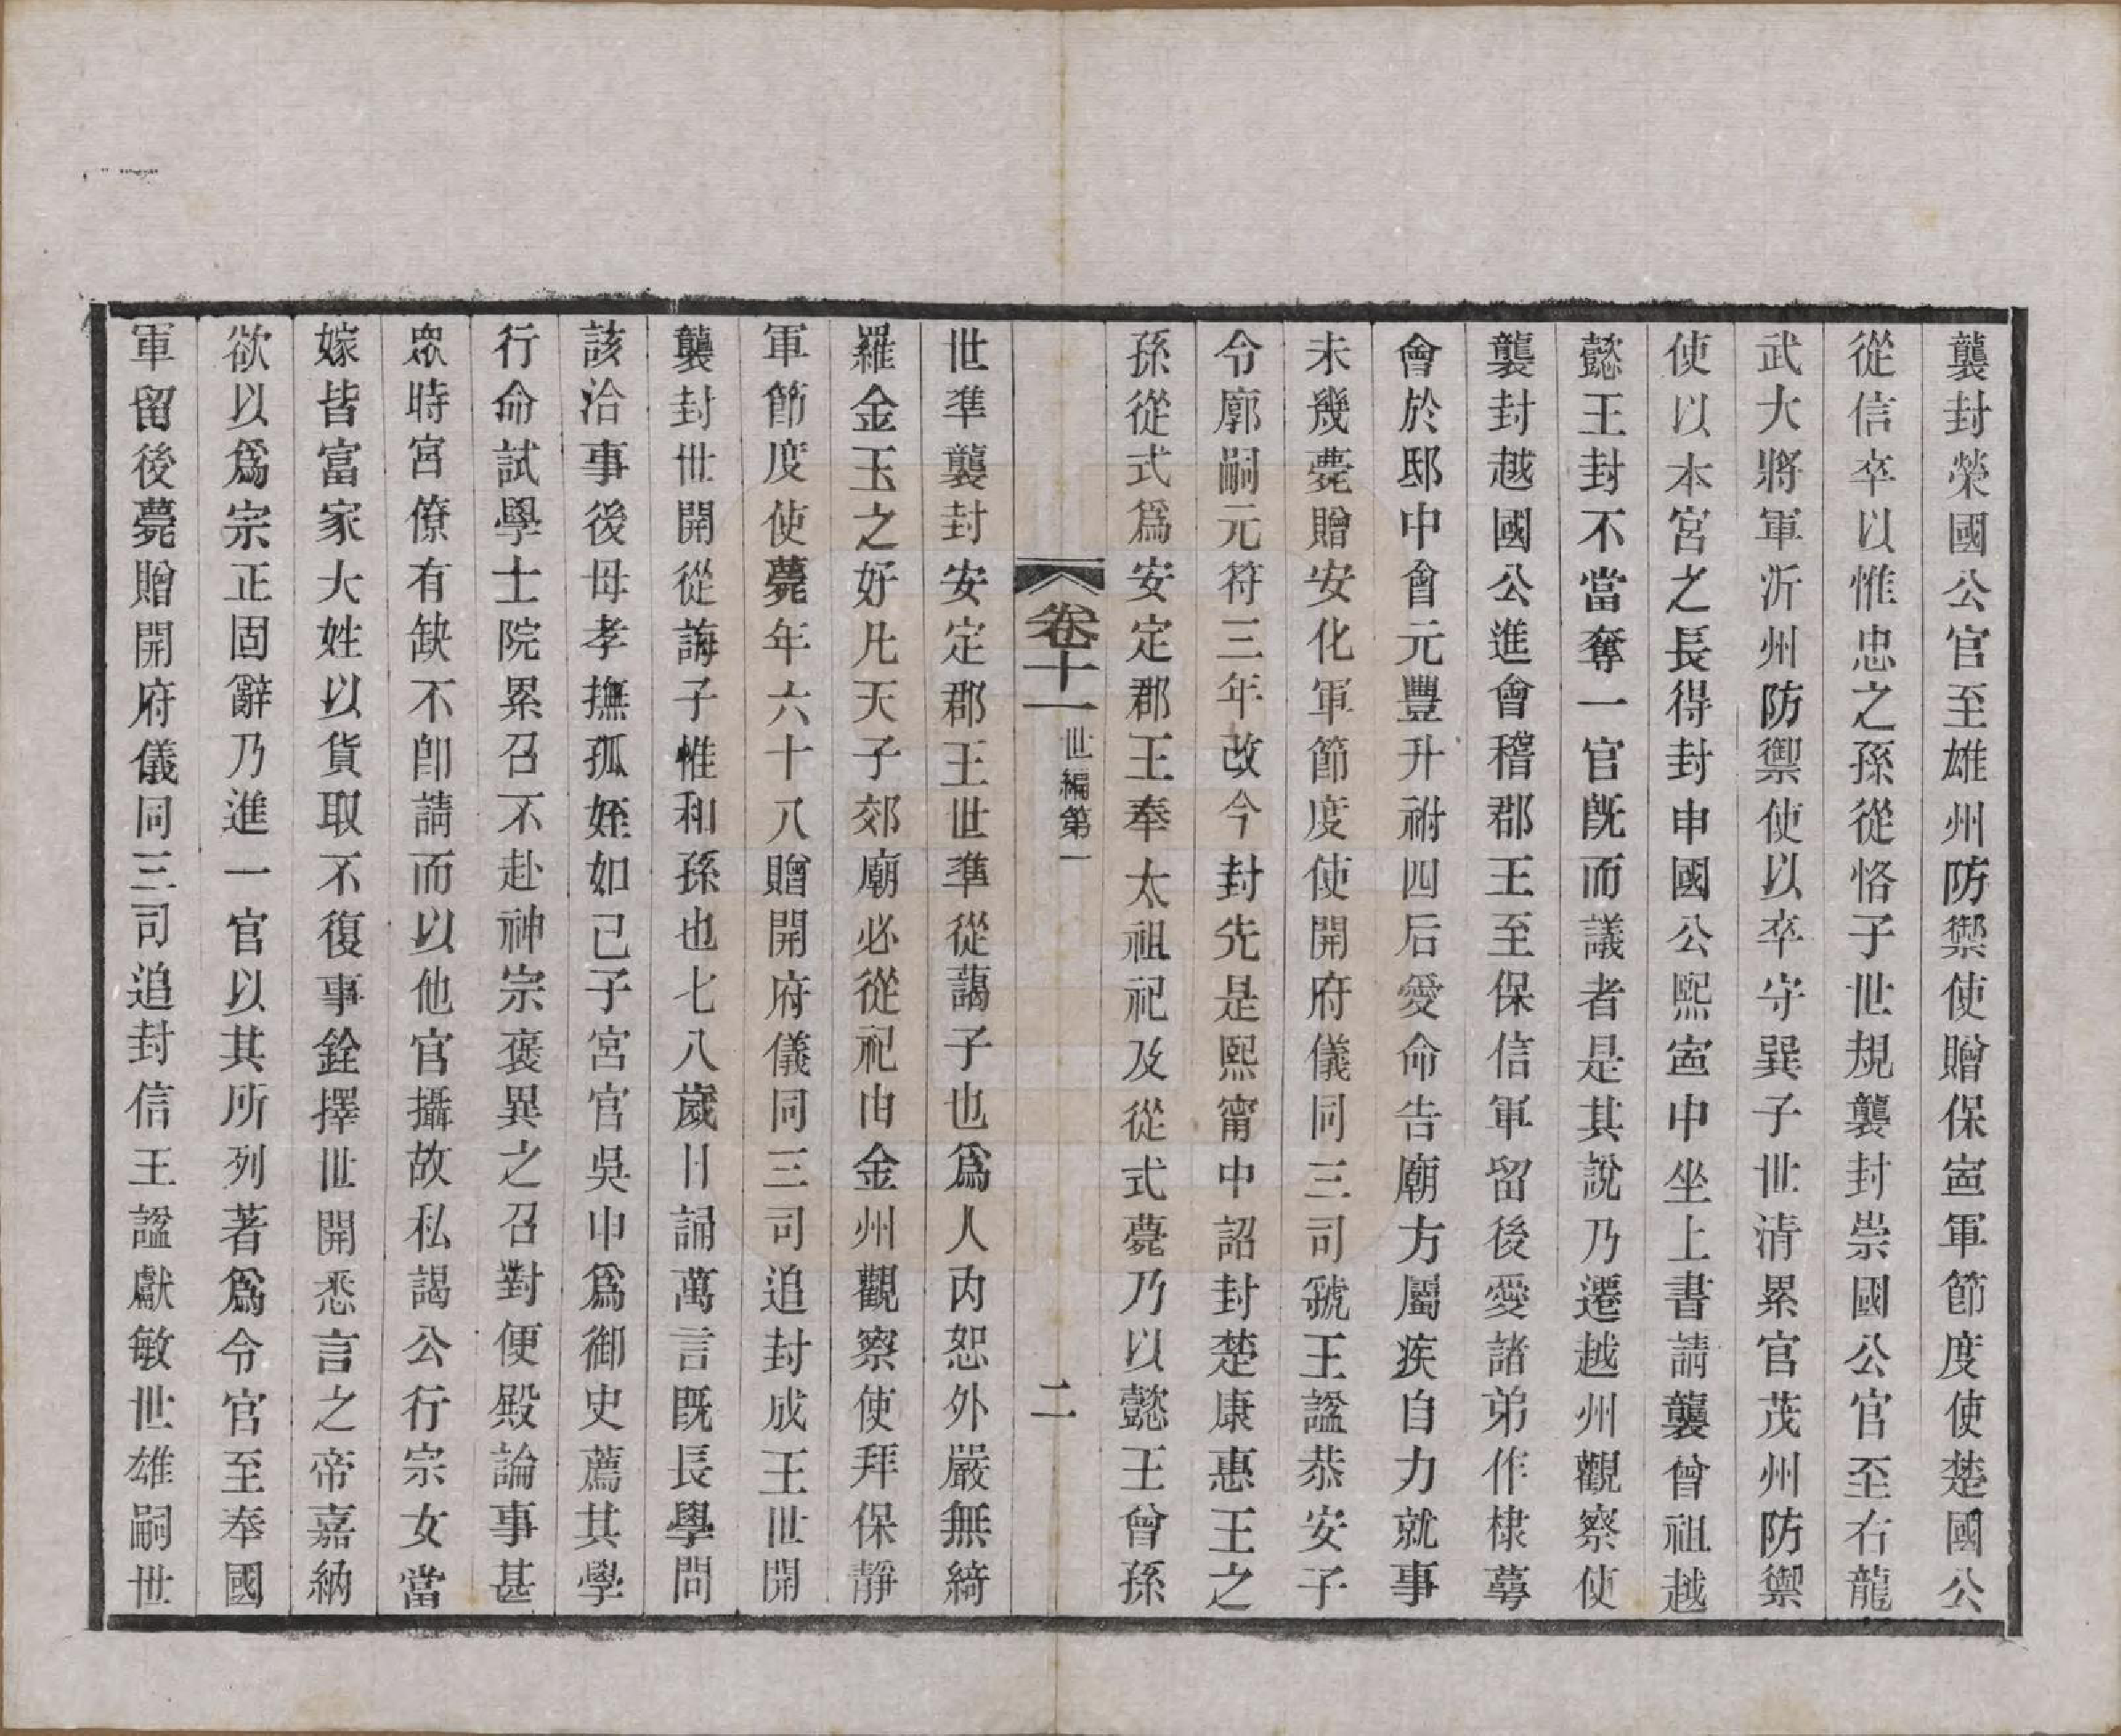 襲封榮國公官至雄州防禦使贈保寍軍節度使楚國公
從信卒以惟忠之孫從恪子世規襲封崇國公官至右龍
武大將軍沂州防禦使以卒守巽子世清累官茂州防禦
使以本宮之長得封申國公熙寍中坐上書請襲曾祖越
懿王封不當奪一官旣而議者是其說乃遷越州觀察使
襲封越國公進會稽郡王至保信軍留後愛諸弟作棣萼
會於邸中會元豐升祔四后愛命告廟方屬疾自力就事
未幾薨贈安化軍節度使開府儀同三司虢王謚恭安子
令廓嗣元符三年改今封先是熙甯中詔封楚康惠王之
孫從式爲安定郡王奉太祖祀及從式薨乃以懿王曾孫
卷十一 世編第一 二
世準襲封安定郡王世準從藹子也爲人内恕外嚴無綺
羅金玉之好凡天子郊廟必從祀由金州觀察使拜保靜
軍節度使薨年六十八贈開府儀同三司追封成王世開
襲封世開從誨子惟和孫也七八歲日誦萬言既長學問
該洽事後母孝撫孤姪如己子宮官吳申爲御史薦其學
行命試學士院累召不赴神宗褒異之召對便殿論事甚
眾時宮僚有缺不卽請而以他官攝故私謁公行宗女當
嫁皆富家大姓以貨取不復事銓擇世開悉言之帝嘉納
欲以爲宗正固辭乃進一官以其所列著爲令官至奉國
軍留後薨贈開府儀同三司追封信王謚獻敏世雄嗣世